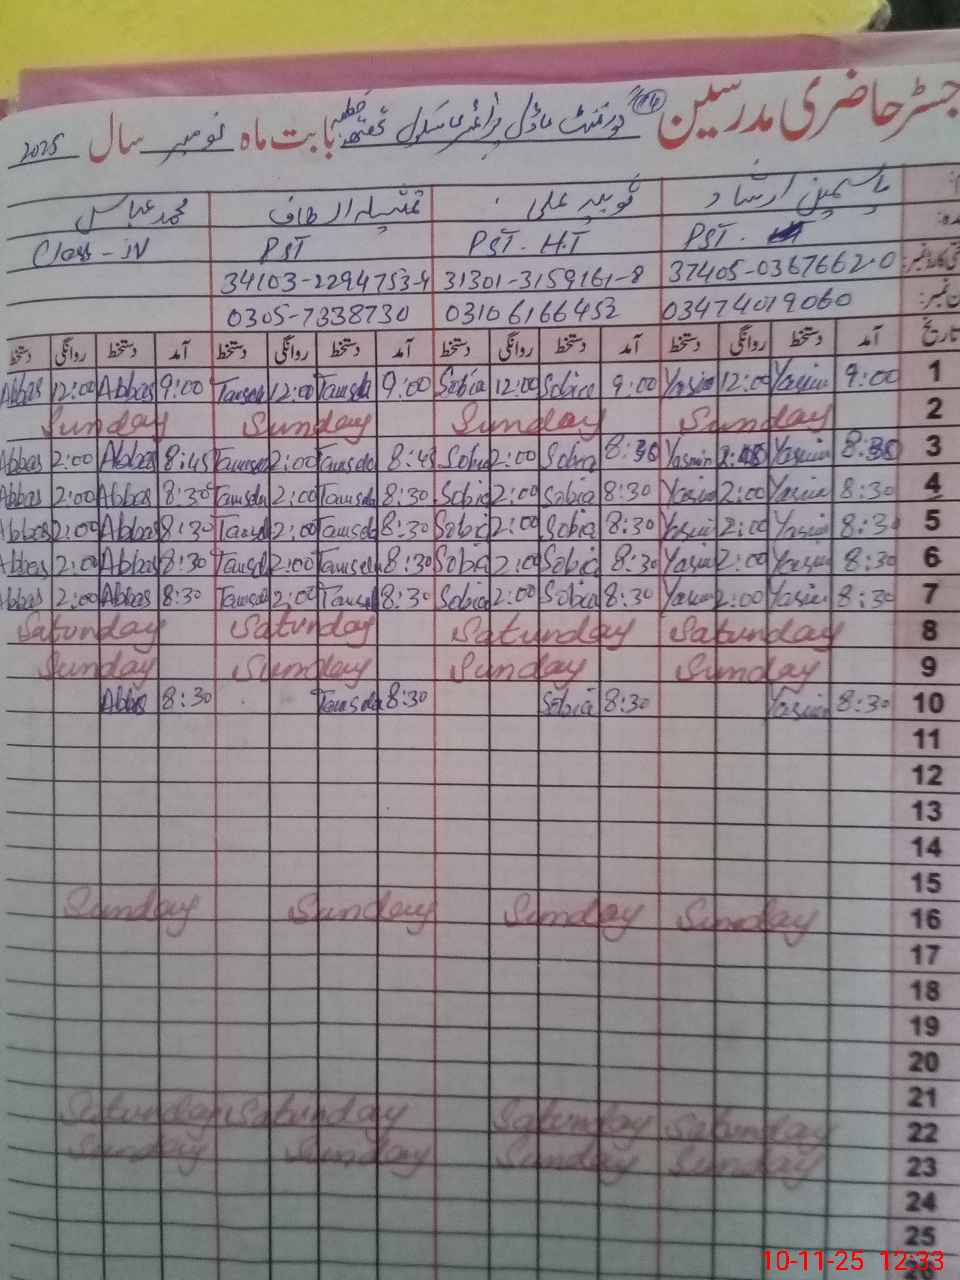 جسٹر حاضری مدرسین گورنمنٹ ماڈل پرائمری سکول بابت ماہ نومبر سال 2025
یاسمین ارشاد ثوبیہ علی الطاف محمد عباس
PST. PST. H.T PST Class - IV
37405-0367662-0 31301-3159161-8 34103-2294753-4
03474019060 03106166452 0305-7338730
تاریخ آمد دستخط روانگی دستخط آمد دستخط روانگی دستخط آمد دستخط روانگی دستخط آمد دستخط روانگی دستخط
1 9:00 Yasmin 12:00 Yasmin 9:00 Sobia 12:00 Sobia 9:00 Tamsela 12:00 Tamsela 9:00 Abbas 12:00 Abbas
2 Sunday Sunday Sunday Sunday
3 8:30 Yasmin 2:00 Yasmin 8:30 Sobia 2:00 Sobia 8:45 Tamsela 2:00 Tamsela 8:45 Abbas 2:00 Abbas
4 8:30 Yasmin 2:00 Yasmin 8:30 Sobia 2:00 Sobia 8:30 Tamsela 2:00 Tamsela 8:30 Abbas 2:00 Abbas
5 8:30 Yasmin 2:00 Yasmin 8:30 Sobia 2:00 Sobia 8:30 Tamsela 2:00 Tamsela 8:30 Abbas 2:00 Abbas
6 8:30 Yasmin 2:00 Yasmin 8:30 Sobia 2:00 Sobia 8:30 Tamsela 2:00 Tamsela 8:30 Abbas 2:00 Abbas
7 8:30 Yasmin 2:00 Yasmin 8:30 Sobia 2:00 Sobia 8:30 Tamsela 2:00 Tamsela 8:30 Abbas 2:00 Abbas
8 Saturday Saturday Saturday Saturday
9 Sunday Sunday Sunday Sunday
10 8:30 Yasmin 8:30 Sobia 8:30 Tamsela 8:30 Abbas
11
12
13
14
15
16 Sunday Sunday Sunday Sunday
17
18
19
20
21
22 Saturday Saturday Saturday Saturday
23 Sunday Sunday Sunday Sunday
24
25
10-11-25 12:33